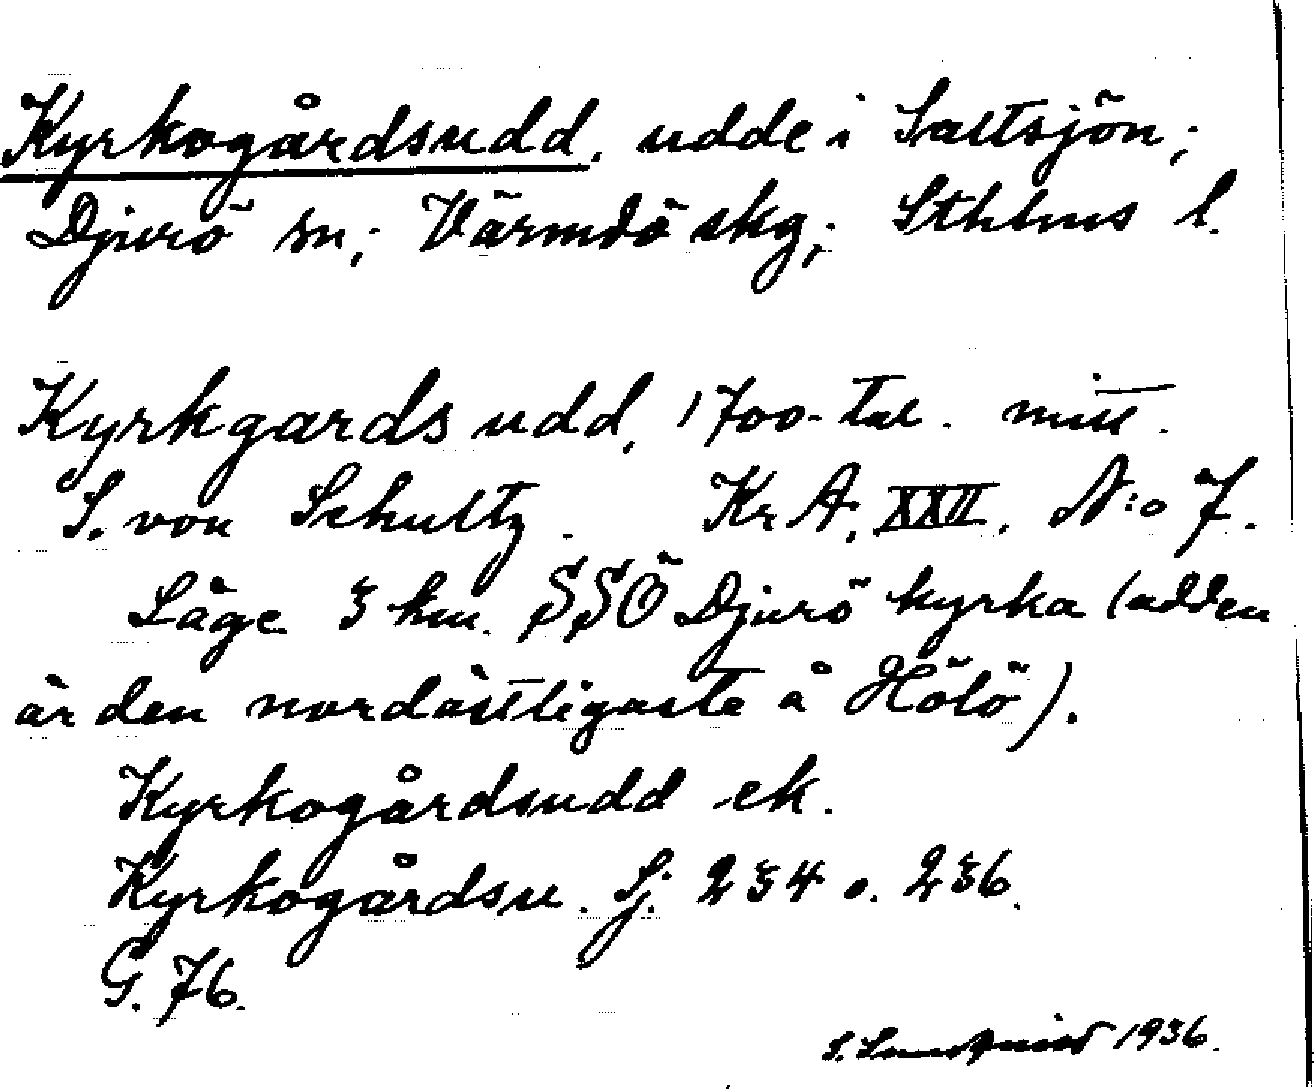 Kyrkogårdsudd, udde i Saltsjön;
Djurö sn; Värmdö skg; Sthlms l.
Kyrkgards udd, 1700-tal. mitt.
S. von Schultz. Kr A, XXII, N:o 7.
Läge 3 km. SSÖ Djurö kyrka (udden
är den nordöstligaste å Hölö).
Kyrkogårdsudd ek.
Kyrkogårdsu. Sj. 234 o. 236.
G. 76.
S. 1936.